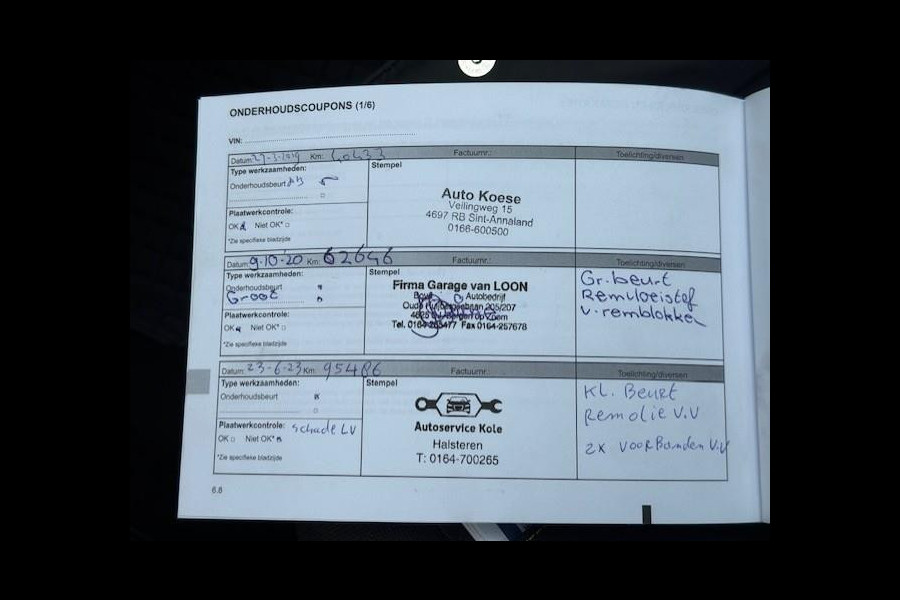 ONDERHOUDSCOUPONS (1/6)
VIN:
Datum: 27-3-2019 Km: 40433 Factuurnr.: Toelichting/diversen
Type werkzaamheden:
Onderhoudsbeurt
Plaatwerkcontrole:
OK Niet OK*
*Zie specifieke bladzijde
Stempel
Auto Koese
Veilingweg 15
4697 RB Sint-Annaland
0166-600500
Datum: 9-10-'20 Km: 62646 Factuurnr.: Toelichting/diversen
Type werkzaamheden:
Onderhoudsbeurt
Groot
Plaatwerkcontrole:
OK Niet OK*
*Zie specifieke bladzijde
Stempel
Firma Garage van LOON
Autobedrijf
205/207
Tel. Fax 0164-257678
Gr. beurt
Remvloeistof
V. remblokken
Datum: 23-6-23 Km: 95486 Factuurnr.: Toelichting/diversen
Type werkzaamheden:
Onderhoudsbeurt
Plaatwerkcontrole: schade LV
OK Niet OK*
*Zie specifieke bladzijde
Stempel
Autoservice Kole
Halsteren
T: 0164-700265
KL. Beurt
Remolie V.V
2x voorBanden V.V
6.6